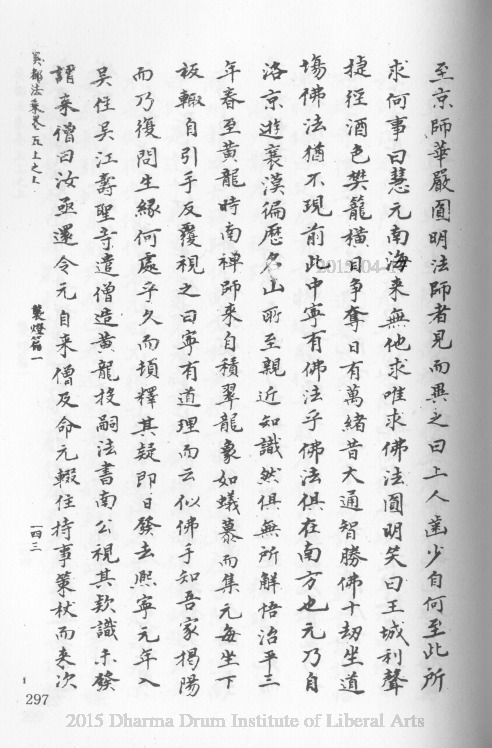 至京師華嚴圓明法師者見而異之曰上人齒少自何至此所
求何事曰慧元南海來無他求唯求佛法圓明笑曰王城利聲
捷徑酒色樊籠橫目爭奪日有萬緒昔大通智勝佛十劫坐道
場佛法猶不現前此中寧有佛法乎佛法俱在南方也元乃自
洛京遊襄漢徧歷名山所至親近知識然俱無所解悟治平三
年春至黃龍時南禪師來自積翠龍象如蟻慕而集元每坐下
板輙自引手反覆視之曰寧有道理而云似佛手知吾家揭陽
而乃復問生緣何處乎久而頓釋其疑即日發去熈寧元年入
吳住吳江壽聖寺遣僧造黃龍投嗣法書南公視其欵識未發
謂來僧曰汝亟還令元自來僧反命元輟住持事策杖而來次
吳都法乘卷五上之上
襲燈篇一
一四三
297
2015-04-
2015 Dharma Drum Institute of Liberal Arts